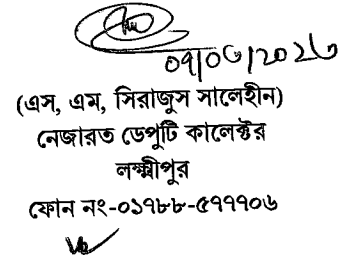 ০৭/০৬/২০২৬
(এস, এম, সিরাজুস সালেহীন)
নেজারত ডেপুটি কালেক্টর
লক্ষ্মীপুর
ফোন নং-০১৭৮৮-৫৭৭৭০৬